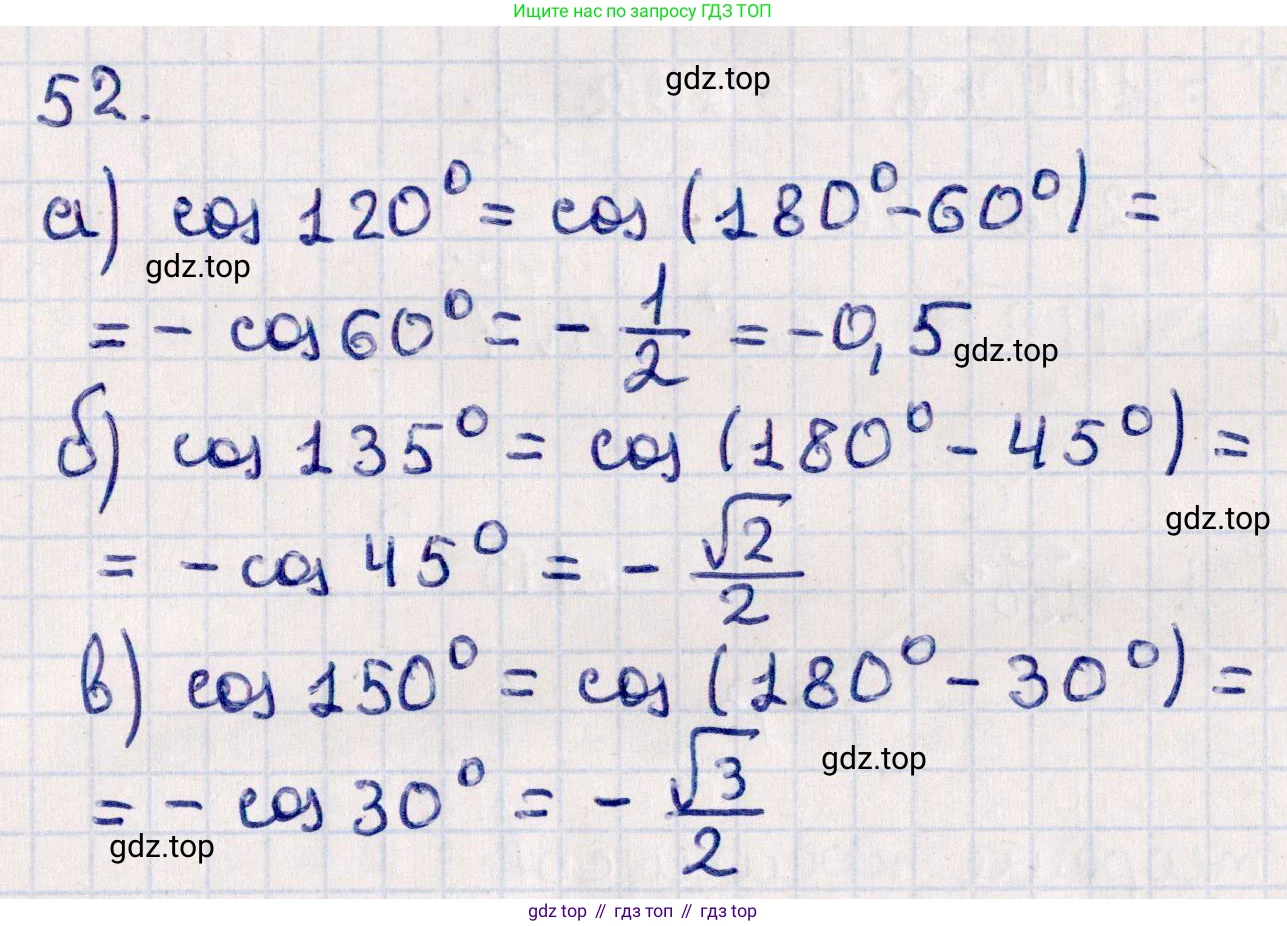 Ищите нас по запросу ГДЗ ТОП
52.
gdz.top
а) cos 120° = cos (180° - 60°) =
gdz.top
= - cos 60° = - 1/2 = -0,5
gdz.top
б) cos 135° = cos (180° - 45°) =
gdz.top
= - cos 45° = - √2/2
в) cos 150° = cos (180° - 30°) =
gdz.top
= - cos 30° = - √3/2
gdz.top
gdz top // гдз топ // гдз top